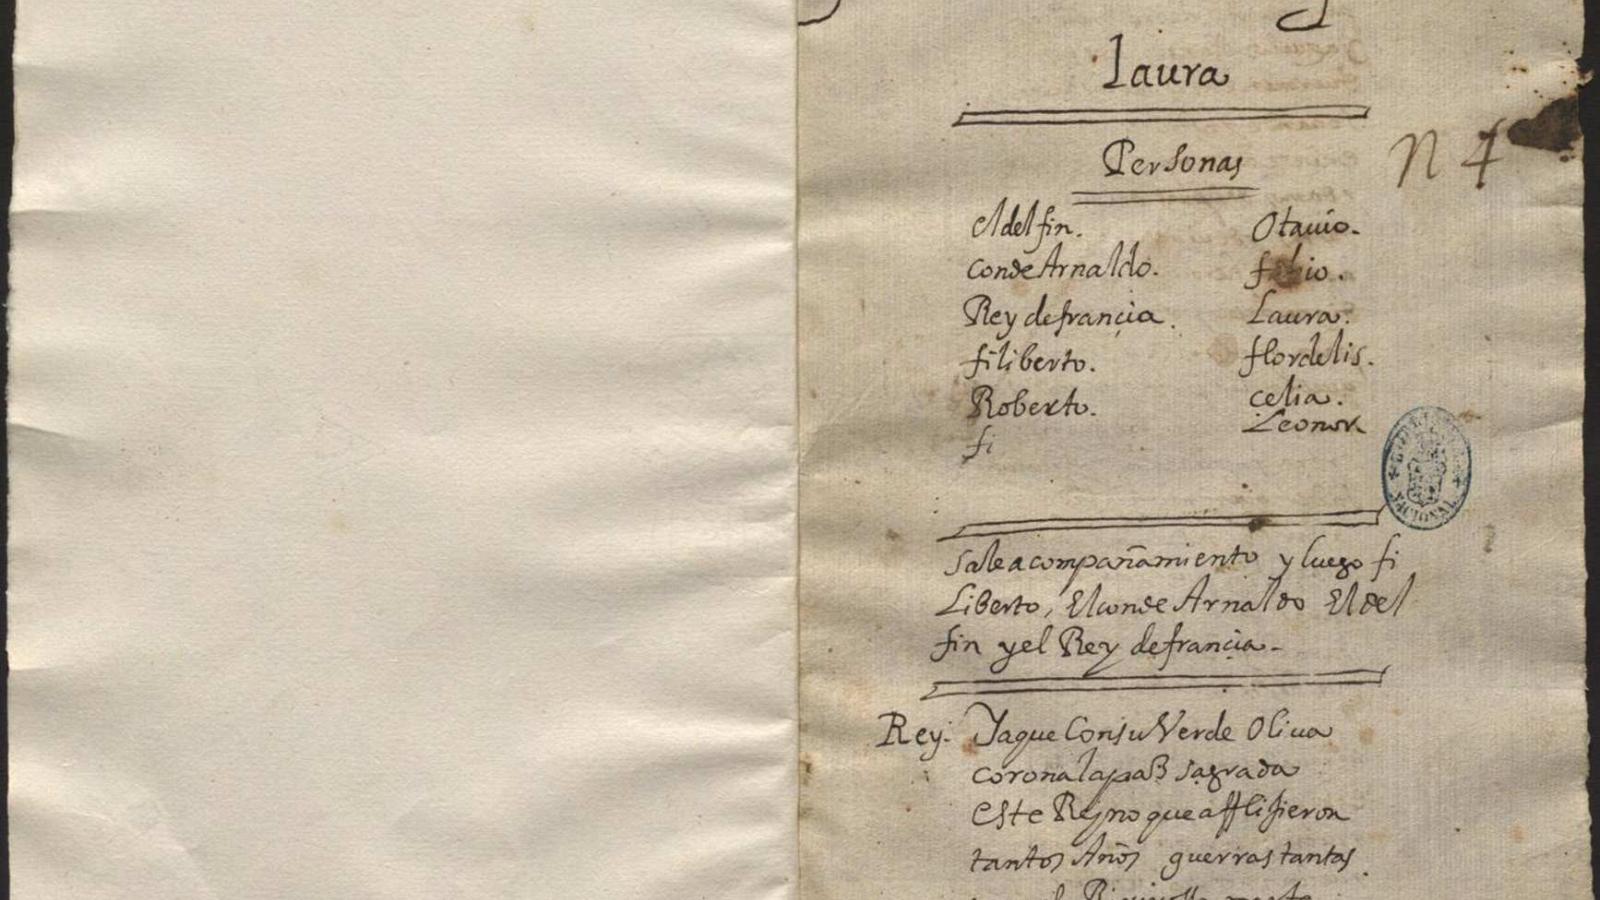 Laura
Personas
N 4
el delfin. Otauio.
conde Arnaldo. fabio.
Rey de françia. Laura.
filiberto. flordelis.
Roberto. celia.
fi Leonor
NACIONAL
Sale acompañamiento y luego fi
Liberto, El conde Arnaldo El del
fin y el Rey de françia.
Rey. Ya que Con su Verde Oliua
corona la paß sagrada
este Reyno que afflijieron
tantos Años guerras tantas